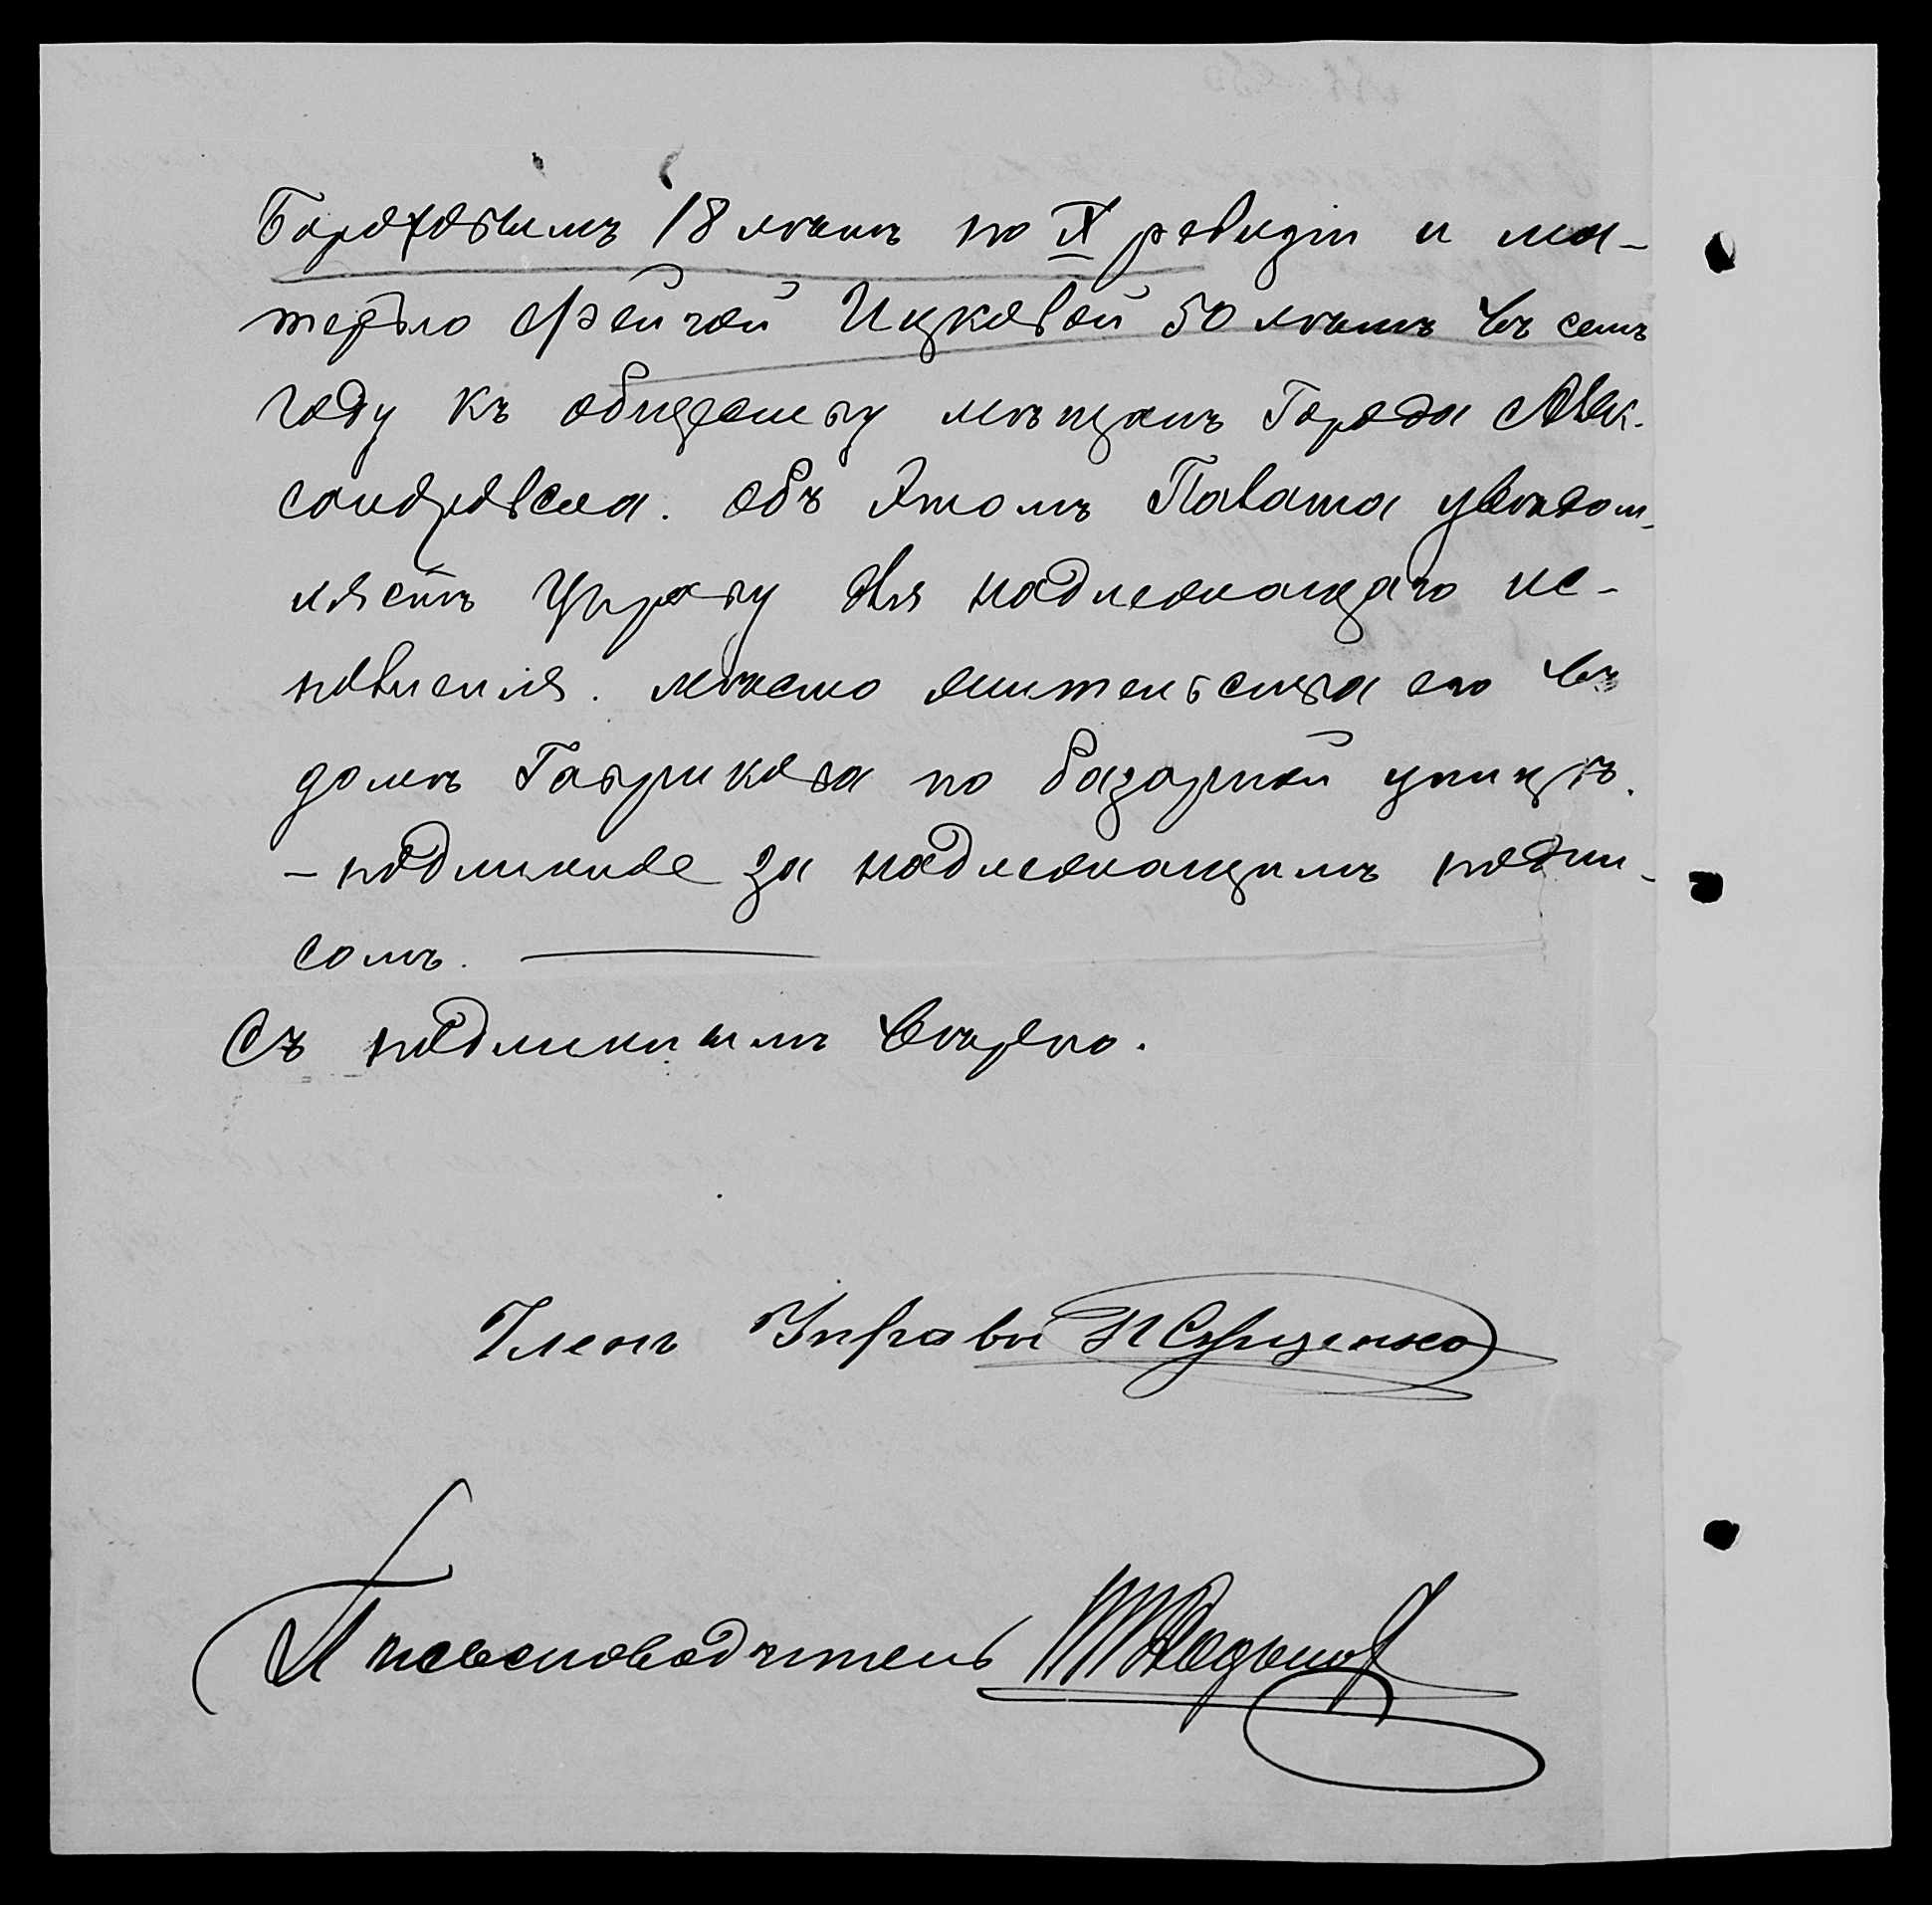 Бороховымъ 18 лѣтъ по IX ревизіи и ма-
терью Фейгой Ицковой 50 лѣтъ въ семъ
году къ обществу мѣщанъ Города Алек-
сандровска. объ Этомъ Палата увѣдом-
ляетъ Управу для надлежащаго ис-
полненія. мѣсто жительства его въ
домѣ Гаврикова по базарной улицѣ.
– подлинное за надлежащимъ подпи-
сомъ.
Съ подлиннымъ вѣрно.
Членъ Управы
Письмоводитель